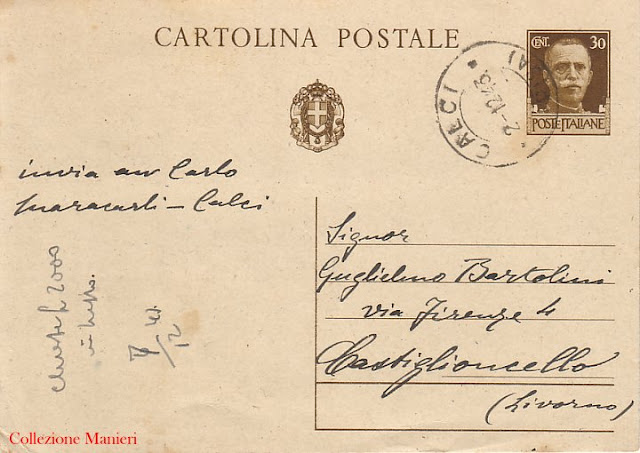 CARTOLINA POSTALE
CENT. 30
POSTE ITALIANE
CALCI
2-12-43
invia avv Carlo
Maracarli - Calci
Signor
Guglielmo Bartolini
via Firenze 4
Castiglioncello
(Livorno)
2000
12
Collezione Manieri